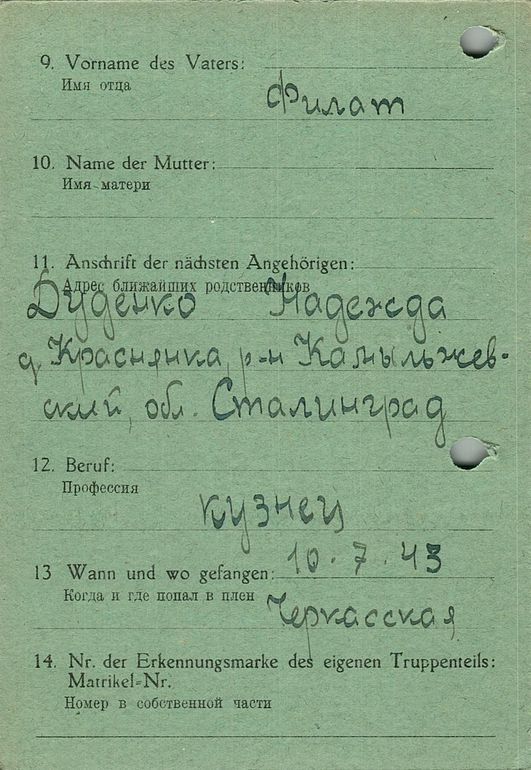 9. Vorname des Vaters:
Имя отца
Филат
10. Name der Mutter:
Имя матери
11. Anschrift der nächsten Angehörigen:
Адрес ближайших родственников
Дуденко Надежда
д. Краснянка, р-н Камыльжев-
ский, обл. Сталинград
12. Beruf:
Профессия
кузнец
13 Wann und wo gefangen: 10.7.43
Когда и где попал в плен
Черкасская
14. Nr. der Erkennungsmarke des eigenen Truppenteils:
Matrikel-Nr.
Номер в собственной части